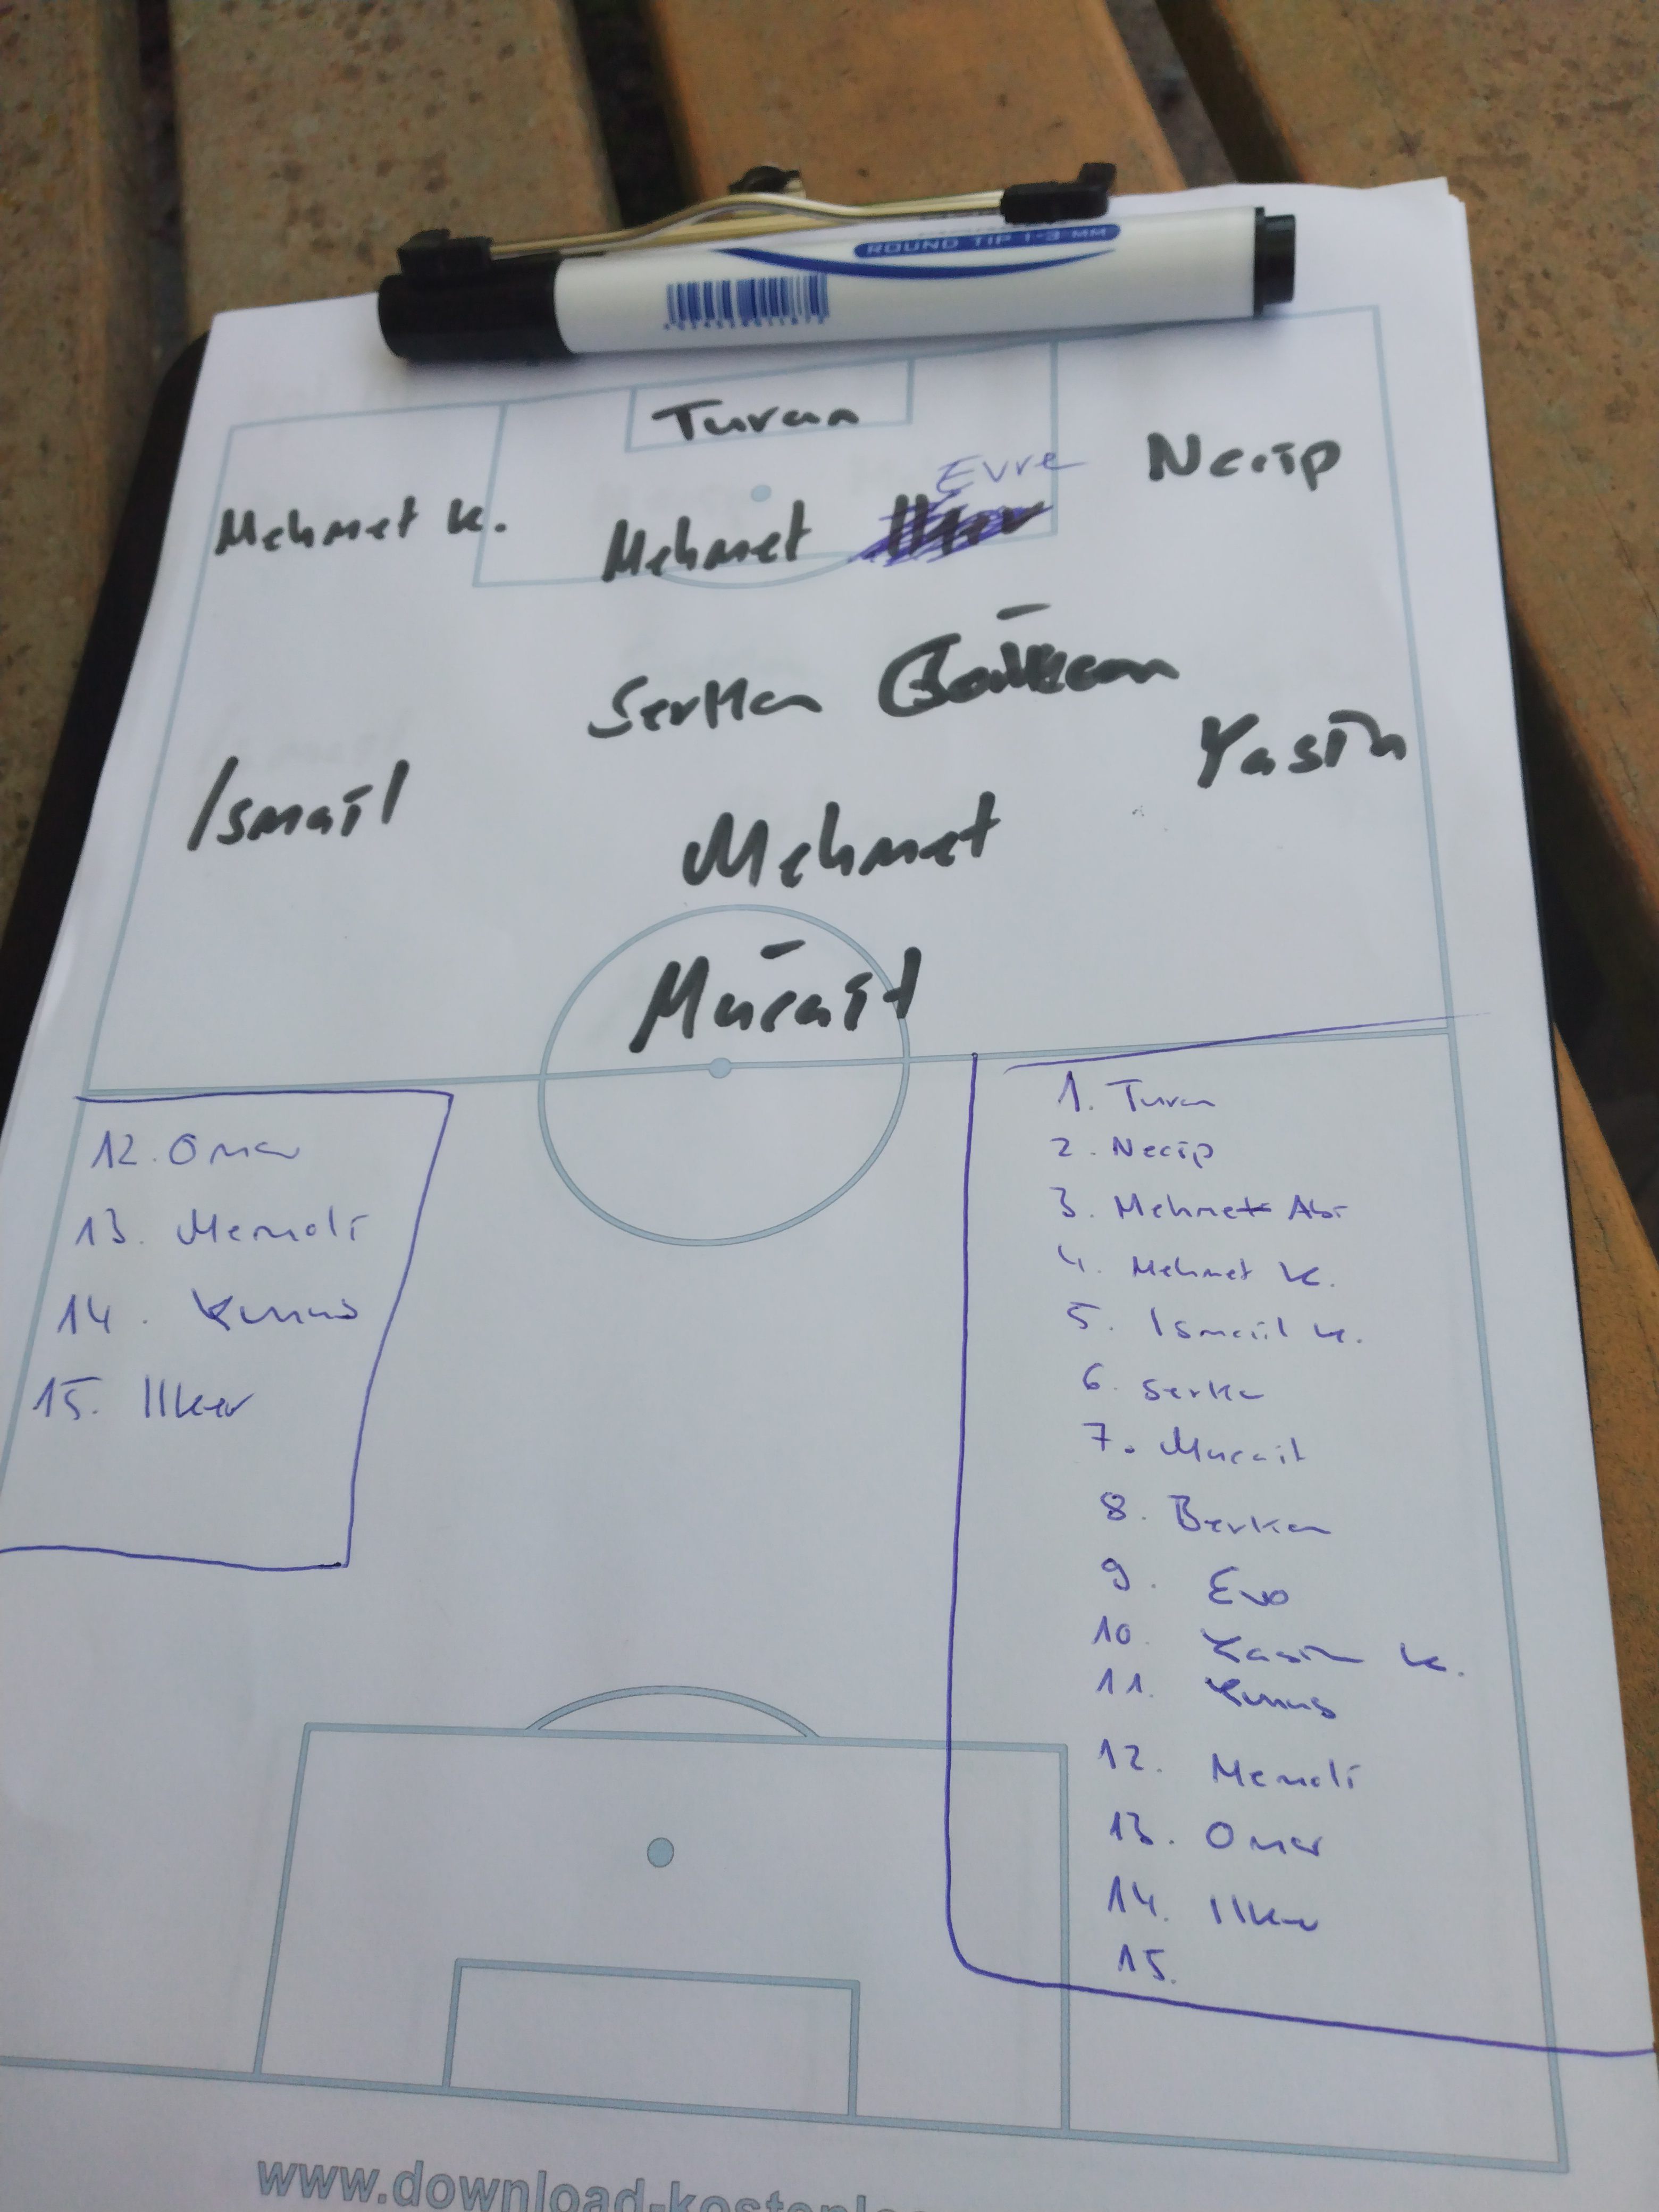 ROUND TIP 1-3 MM
Turan
Evre
Necip
Mehmet K.
Mehmet
Serkan
Yasin
Ismail
Mehmet
Mücait
12. Omar
13. Memoli
14. Yunus
15. Ilker
1. Turan
2. Necip
3. Mehmet Abi
4. Mehmet K.
5. Ismail K.
6. Serkan
7. Mucait
8. Berkan
9. Evo
10. Yasin K.
11. Yunus
12. Memoli
13. Omar
14. Ilker
15.
www.download-kostenlo